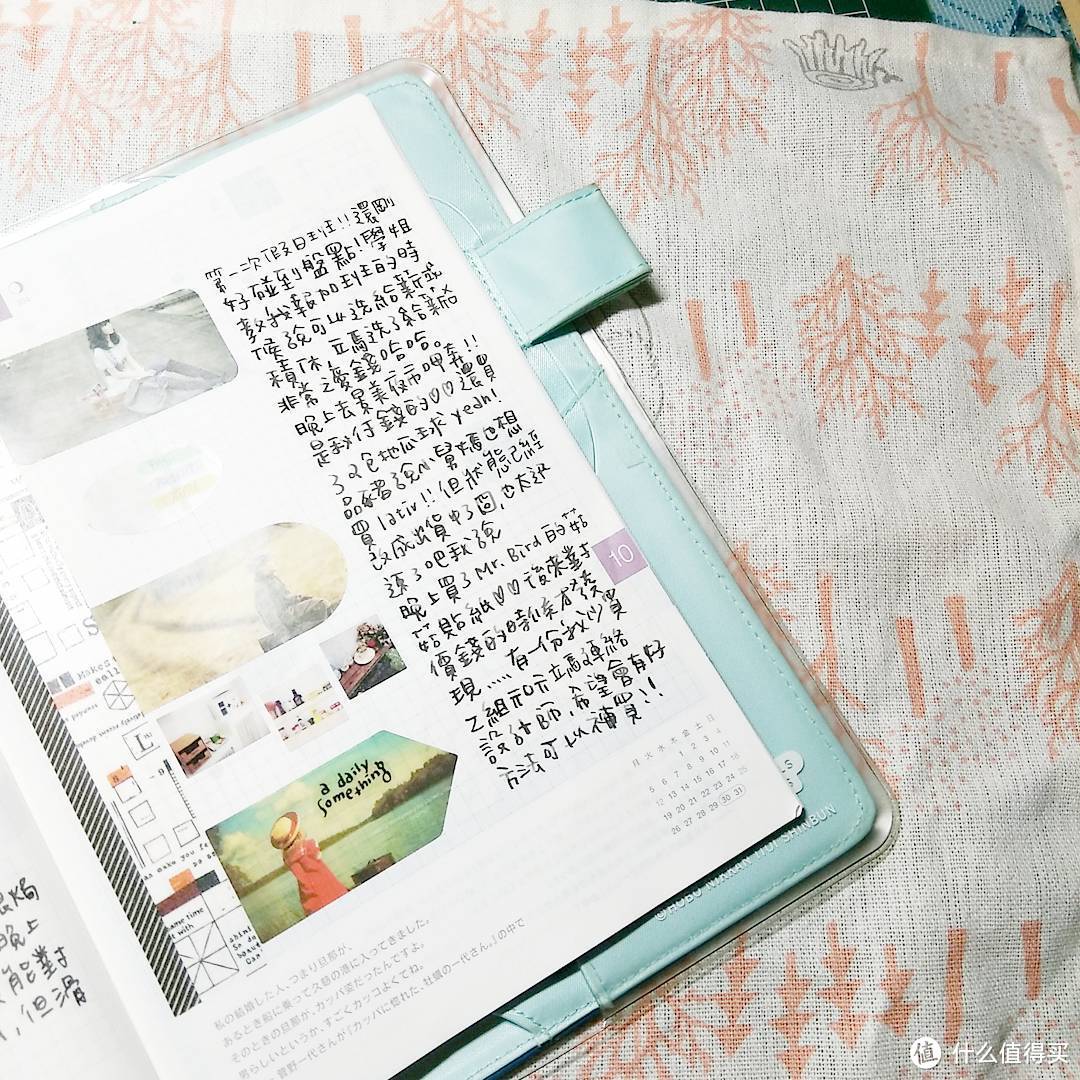 第一次假日班!!還剛
好碰到盤點!學姐
教我報加班的時
候說可以選給薪或
積休,立馬選了給薪
非常之愛錢哈哈。
晚上去景美夜市呷茶!!
是我付錢的♡♡還買
了2包地瓜球 yeah!
品豬說小舅媽也想
買 lativ!!但狀態已經
改成出貨中了囧,也太迅
速了吧我說
晚上買了Mr. Bird的菇
菇貼紙♡♡後來對
價錢的時候才發
現.....有一份我少買
乙組,立馬連絡
設計師,希望會有好
方法可以補買!!
10
月 火 水 木 金 土 日
1 2 3 4
5 6 7 8 9 10 11
12 13 14 15 16 17 18
19 20 21 22 23 24 25
26 27 28 29 30 31
a daily
something
Makes
L
same time
晚上
能對
,但滑
私の結婚した人、つまり旦那が、
あるとき船に乗って久慈の港に入ってきました。
そのときの旦那が、カッパ姿だったんですよ。
男らしいというか、すごくカッコよくてね。
——菅野一代さんが『カッパに惚れた、牡蠣の一代さん。』の中で
©HOBO NIKKAN ITOI SHINBUN
值 什么值得买